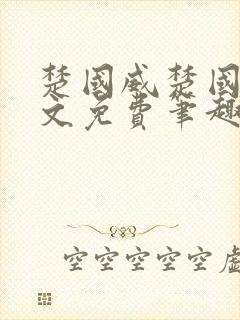 楚国威楚国
文免费笔趣
空空空空空虚